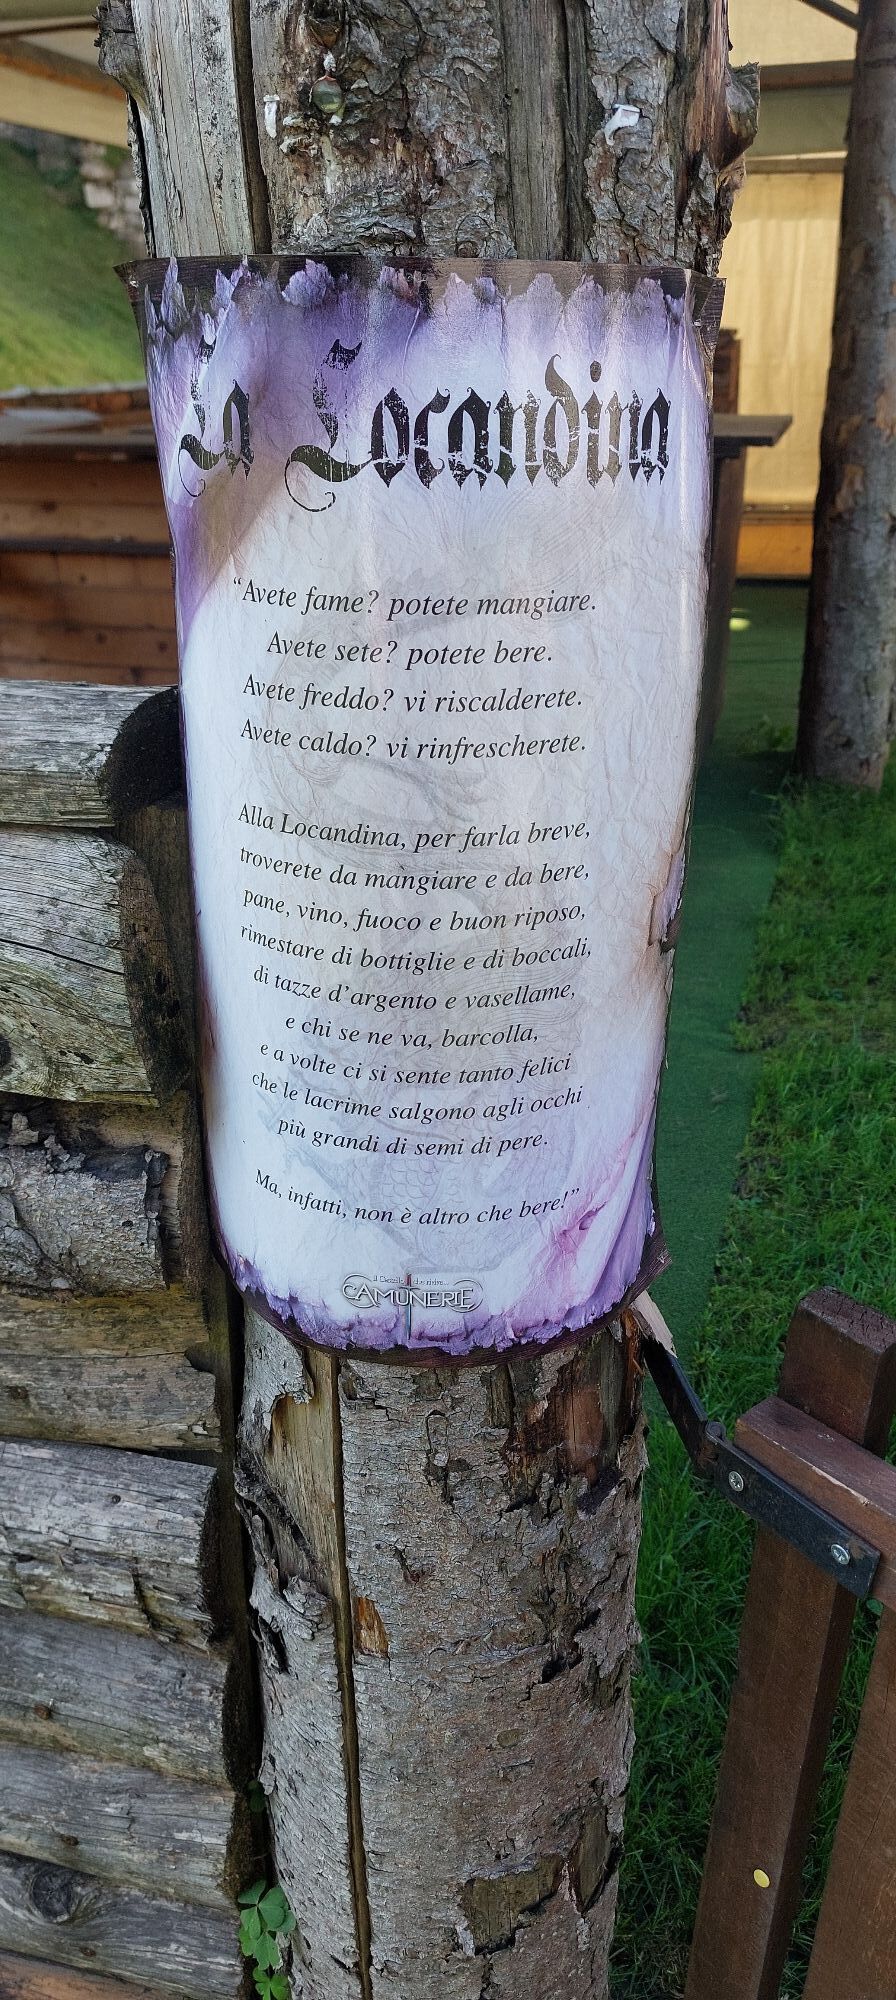 La Locandina
“Avete fame? potete mangiare.
Avete sete? potete bere.
Avete freddo? vi riscalderete.
Avete caldo? vi rinfrescherete.
Alla Locandina, per farla breve,
troverete da mangiare e da bere,
pane, vino, fuoco e buon riposo,
rimestare di bottiglie e di boccali,
di tazze d’argento e vasellame,
e chi se ne va, barcolla,
e a volte ci si sente tanto felici
che le lacrime salgono agli occhi
più grandi di semi di pere.
Ma, infatti, non è altro che bere!”
CAMUNERIE